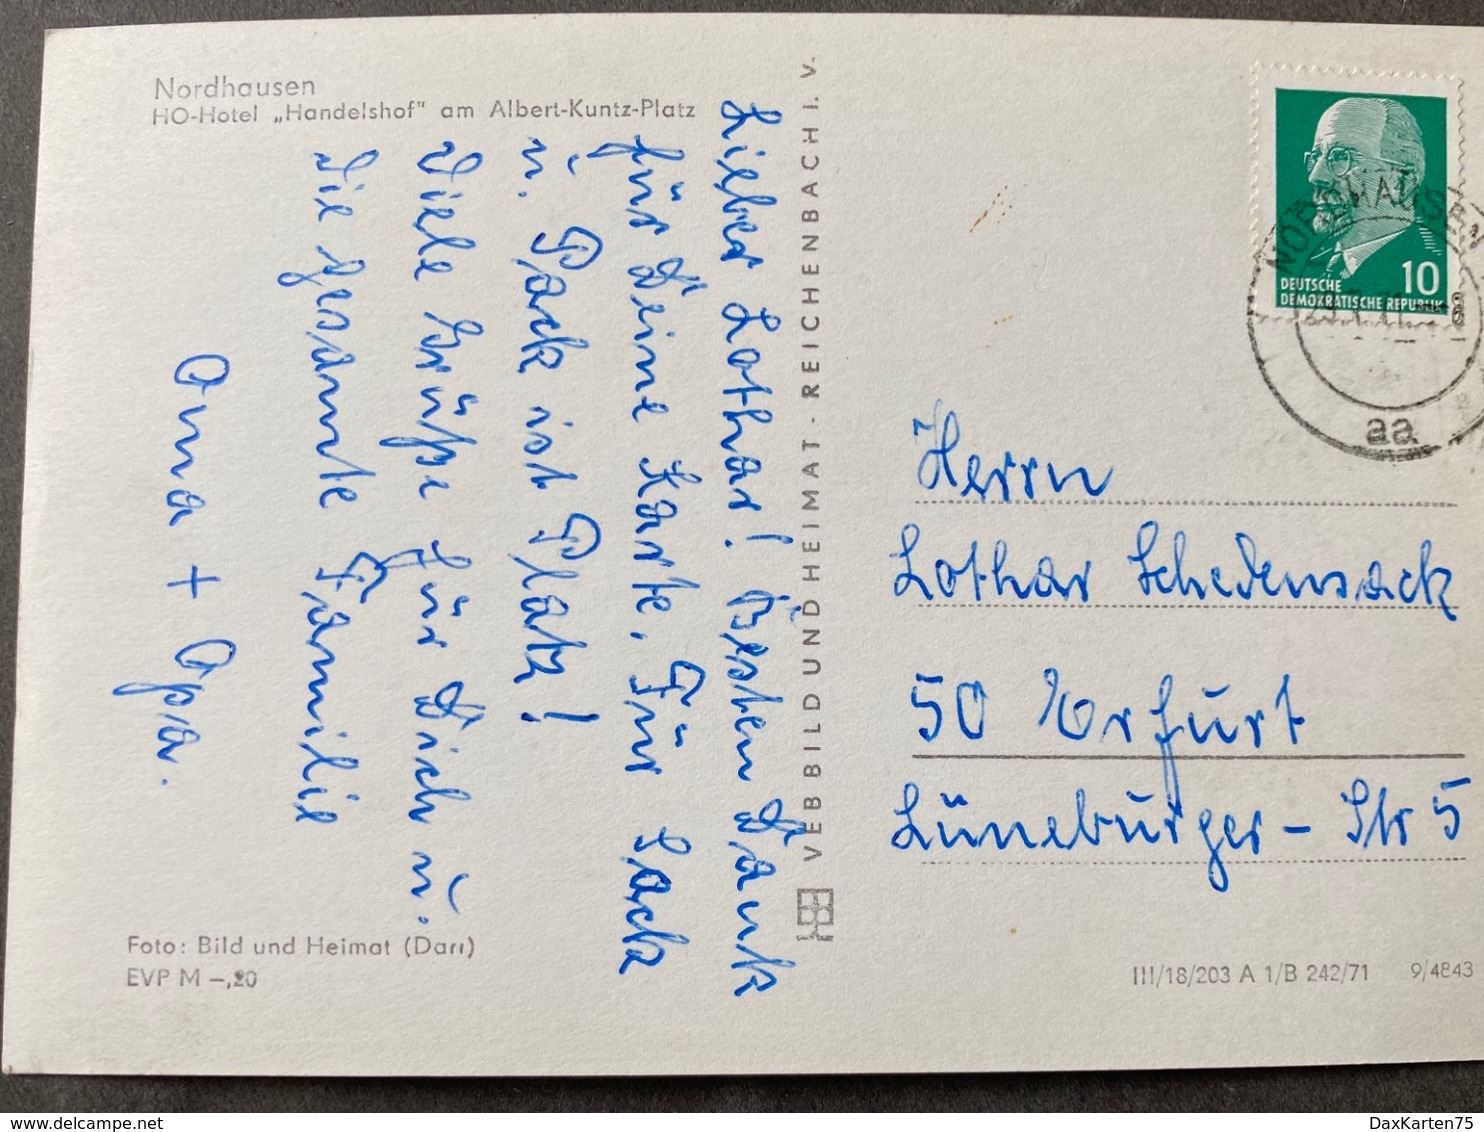 Nordhausen
HO-Hotel „Handelshof" am Albert-Kuntz-Platz
Lieber Lothar! Besten Dank
für Deine Karte. Für Sack
u. Pack ist Platz!
Viele Grüße für Dich u.
die gesamte Familie
Oma + Opa.
Foto: Bild und Heimat (Darr)
EVP M –,20
VEB BILD UND HEIMAT · REICHENBACH I. V.
DEUTSCHE
DEMOKRATISCHE REPUBLIK
10
NORDHAUSEN
aa
Herrn
Lothar Schedensack
50 Erfurt
Lüneburger-Str 5
III/18/203 A 1/B 242/71 9/4843
DaxKarten75